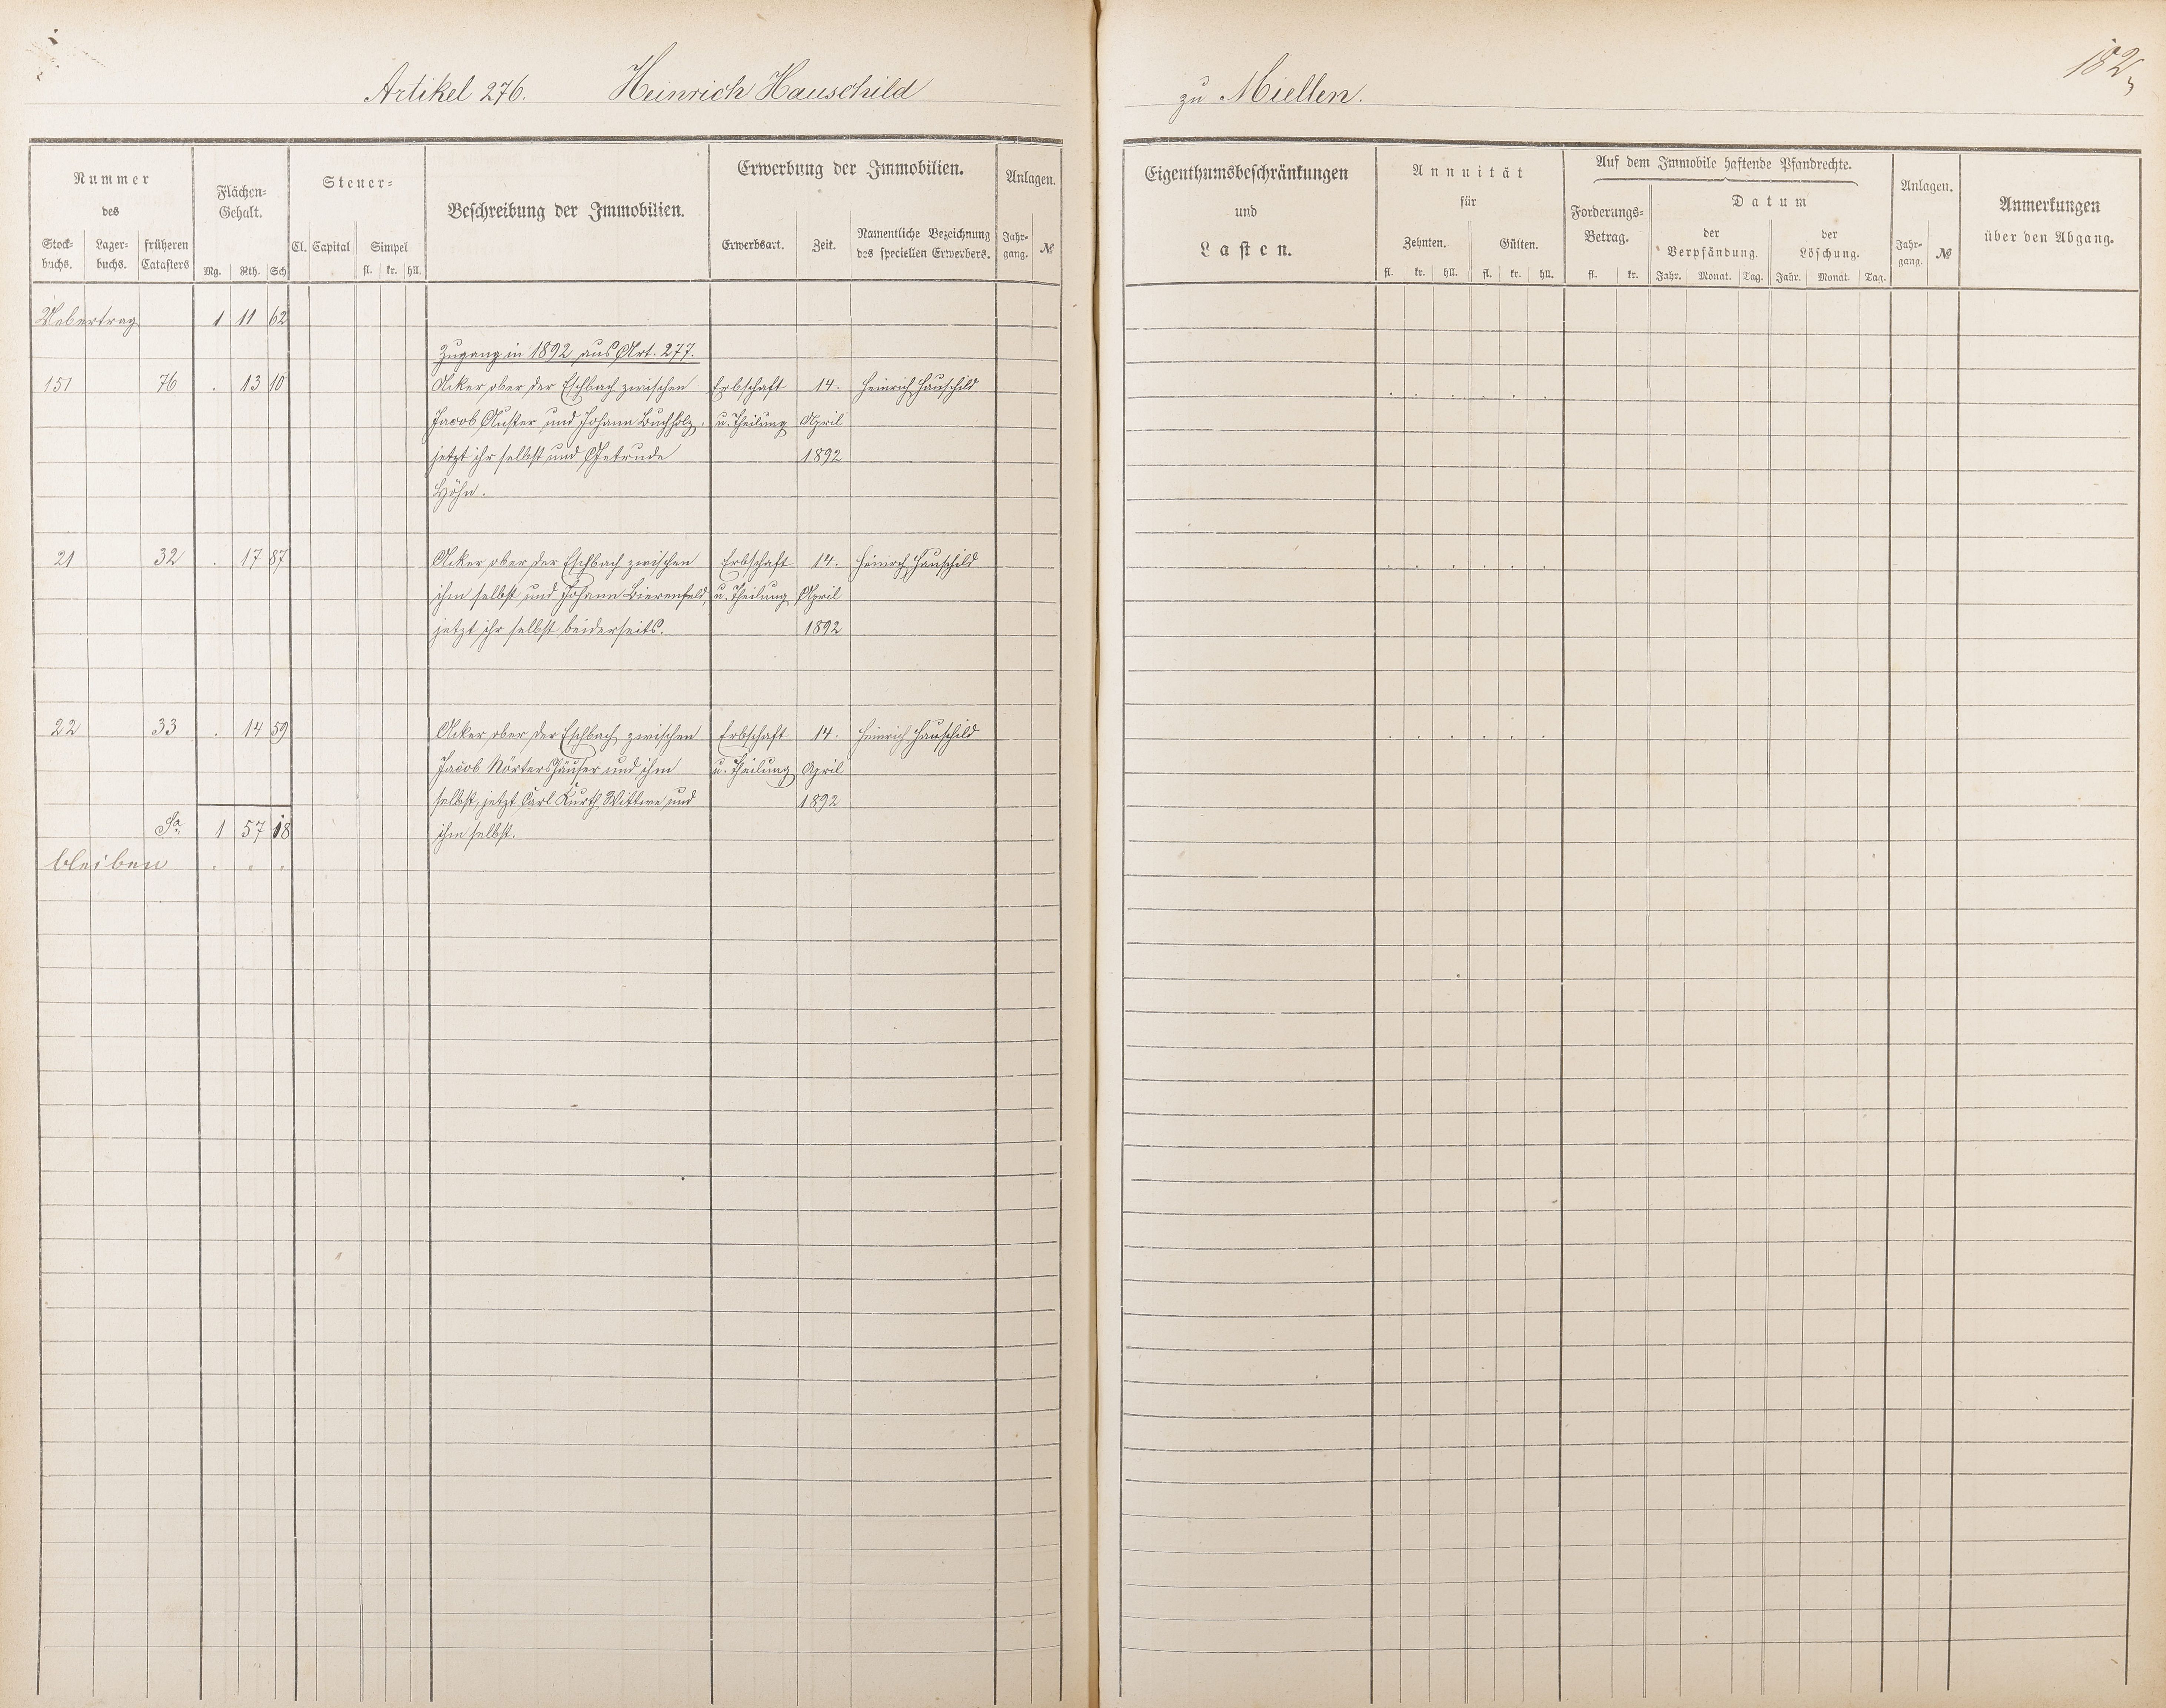 182
Artikel 276. Heinrich Hauschild zu Miellen.
Nummer des
Stock-buchs. Lager-buchs. früheren Catasters
Flächen-Gehalt.
Mg. Rth. Sch
Steuer-
Cl. Capital Simpel
fl. kr. hll.
Beschreibung der Immobilien.
Erwerbung der Immobilien.
Erwerbsart. Zeit. Namentliche Bezeichnung des speciellen Erwerbers.
Anlagen.
Jahr-gang. №
Eigenthumsbeschränkungen
und
Lasten.
Annuität
für
Zehnten. Gülten.
fl. kr. hll. fl. kr. hll.
Auf dem Immobile haftende Pfandrechte.
Forderungs-Betrag.
fl. kr.
Datum
der Verpfändung. der Löschung.
Jahr. Monat. Tag. Jahr. Monat. Tag.
Anlagen.
Jahr-gang. №
Anmerkungen
über den Abgang.
Uebertrag 1 11 62
Zugang in 1892 aus Art. 277.
151 76 . 13 10 Acker ober der Eschbach zwischen Erbschaft 14. Heinrich Hauschild
Jacob Auster und Johann Buchholz, u. Theilung April
jetzt ihr selbst und Gertrude 1892
Höhn.
21 32 . 17 87 Acker ober der Eschbach zwischen Erbschaft 14. Heinrich Hauschild
ihm selbst und Johann Bierenfeld, u. Theilung April
jetzt ihr selbst beiderseits. 1892
22 33 . 14 59 Acker ober der Eschbach zwischen Erbschaft 14. Heinrich Hauschild
Jacob Nörtershäuser und ihm u. Theilung April
selbst, jetzt Carl Kurth Wittwe und 1892
Sa 1 57 18 ihm selbst.
bleiben . . .